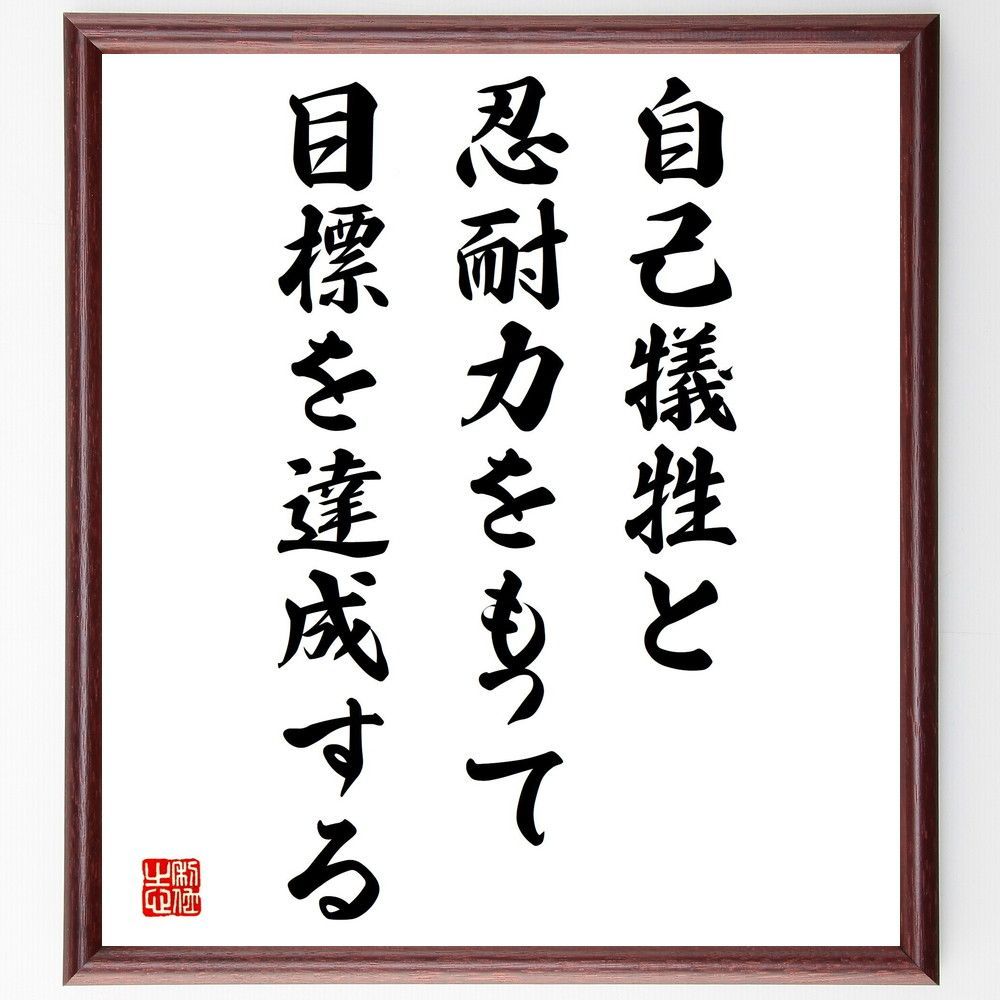 自己犠牲と
忍耐力をもって
目標を達成する